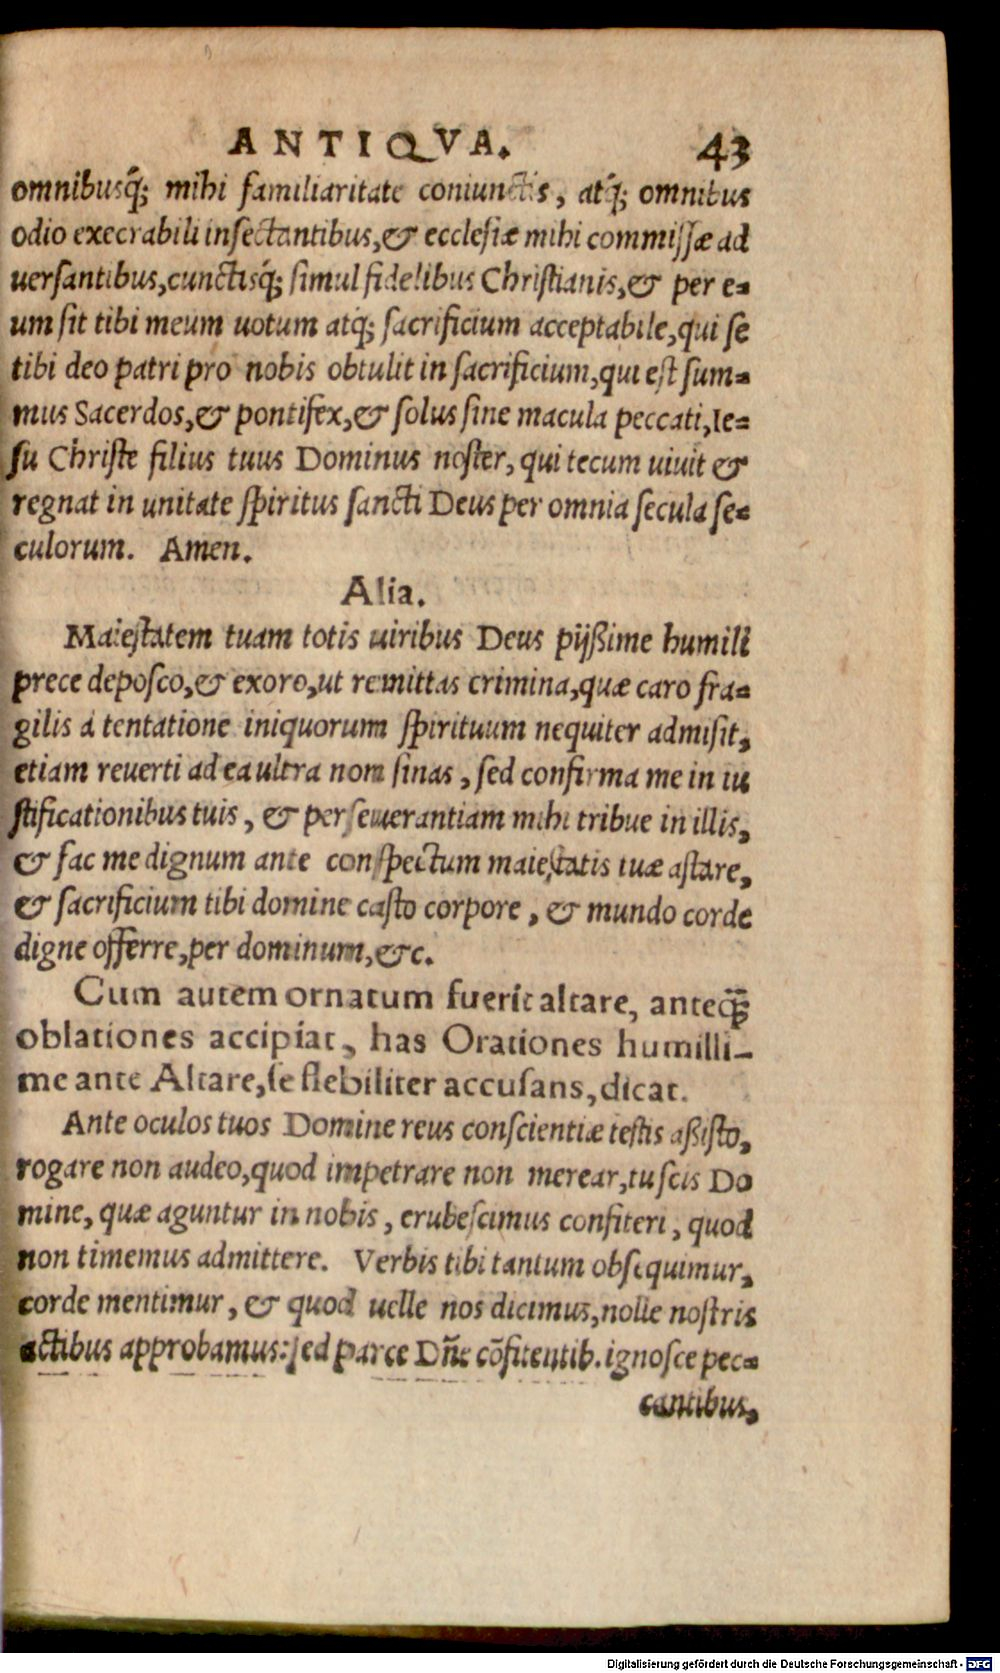 ANTIQVA. 43
omnibusq̃; mihi familiaritate coniunctis, atq̃; omnibus
odio execrabili insectantibus, & ecclesiæ mihi commissæ ad
uersantibus, cunctisq̃; simul fidelibus Christianis, & per e-
um sit tibi meum uotum atq̃; sacrificium acceptabile, qui se
tibi deo patri pro nobis obtulit in sacrificium, qui est sum-
mus Sacerdos, & pontifex, & solus sine macula peccati, Ie-
su Christe filius tuus Dominus noster, qui tecum uiuit &
regnat in unitate spiritus sancti Deus per omnia secula se-
culorum. Amen.
Alia.
Maiestatem tuam totis uiribus Deus pijßime humili
prece deposco, & exoro, ut remittas crimina, quæ caro fra-
gilis á tentatione iniquorum spirituum nequiter admisit,
etiam reuerti ad ea ultra non sinas, sed confirma me in iu
stificationibus tuis, & perseuerantiam mihi tribue in illis,
& fac me dignum ante conspectum maiestatis tuæ astare,
& sacrificium tibi domine casto corpore, & mundo corde
digne offerre, per dominum, &c.
Cum autem ornatum fuerit altare, anteq̃
oblationes accipiat, has Orationes humilli-
me ante Altare, se flebiliter accusans, dicat.
Ante oculos tuos Domine reus conscientiæ testis aßisto,
rogare non audeo, quod impetrare non merear, tu scis Do
mine, quæ aguntur in nobis, erubescimus confiteri, quod
non timemus admittere. Verbis tibi tantum obsequimur,
corde mentimur, & quod uelle nos dicimus, nolle nostris
actibus approbamus: sed parce Dñe cõfitentib. ignosce pec-
cantibus,
Digitalisierung gefördert durch die Deutsche Forschungsgemeinschaft - DFG